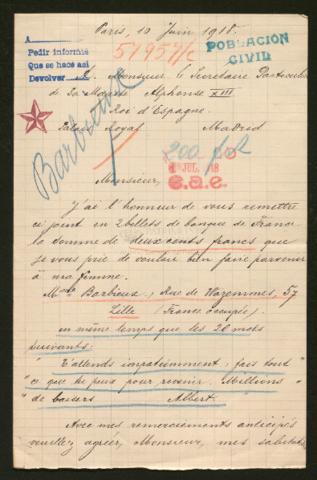 Paris, 10 Juin 1918.
A
Pedir informe
Que se hace así
Devolver
51957/c
POBLACIÓN
CIVIL
A Monsieur le Secrétaire Particulier
de Sa Majesté Alphonse XIII
Roi d'Espagne
Palais Royal Madrid
Barbieux
200
JUL. 18
e.a.e.
Monsieur,
J'ai l'honneur de vous remettre
ci joint en 2 billets de banque de France
la somme de deux cents francs que
je vous prie de vouloir bien faire parvenir
à ma femme.
Mme Barbieux, Rue de Wazemmes, 57
Lille (France occupée)
en même temps que les 20 mots
suivants:
" T'attends impatiemment, fais tout
" ce que tu peux pour revenir. Millions
" de baisers Albert "
Avec mes remerciements anticipés
veuillez agréer, Monsieur, mes salutats